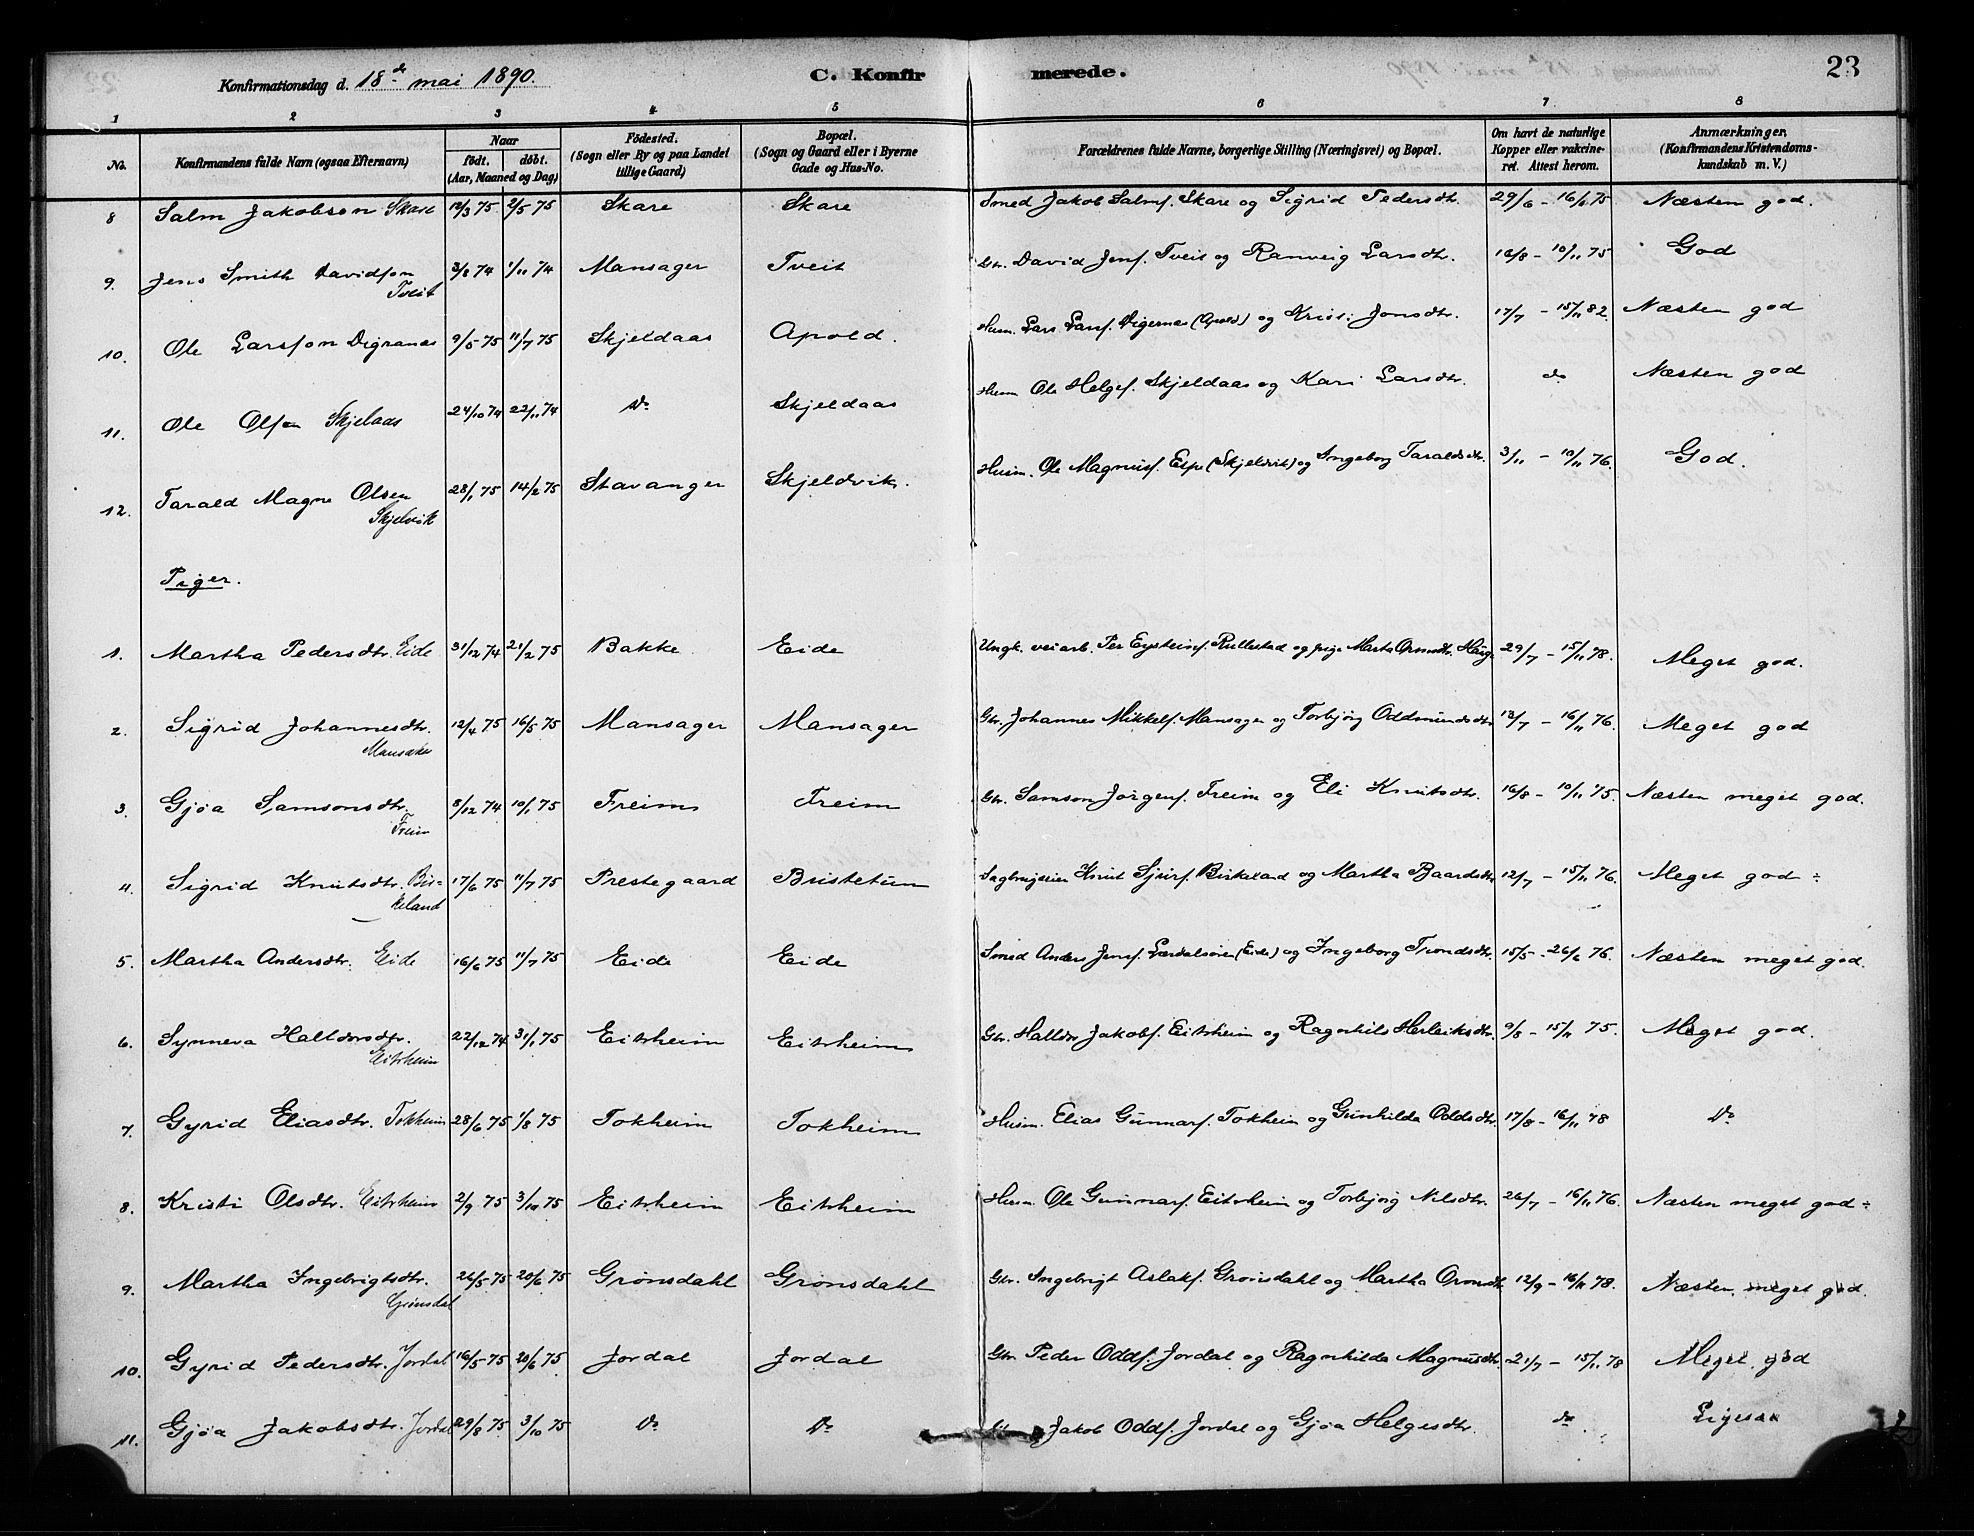 Konfirmationsdag d. 18de mai 1890. C. Konfirmerede. 23
1 2 3 4 5 6 7. 8
No. Konfirmandens fulde Navn (ogsaa Efternavn) Naar født. døbt. (Aar, Maaned og Dag) Fødested. (Sogn eller By og paa Landet tillige Gaard) Bopæl. (Sogn og Gaard eller i Byerne Gade og Hus-No. Forældrenes fulde Navne, borgerlige Stilling (Næringsvei) og Bopæl. Om havt de naturlige Kopper eller vakcineret. Attest herom. Anmærkninger. (Konfirmandens Kristendomskundskab m. V.)
8 Salm Jakobson Skare 12/3 75 2/5 75 Skare Skare Smed Jakob Salmf. Skare og Sigrid Pedersdtr. 29/6 - 16/6 75 Næsten god.
9. Jens Smith Davidson Tveit 3/8 74 1/11 74 Mansager Tveit Gbr. David Jensf. Tveit og Ranveig Larsdtr. 16/8 - 10/11 75 God
10. Ole Larsson Digranes 9/5 75 11/7 75 Skjeldaas Apold. Husm. Lars Larsf. Digernes (Apold) og Kristi Jonsdtr. 17/7 - 15/11 82. Næsten god
11. Ole Olsen Skjelaas 24/10 74 22/11 74 Do Skjeldaas Husm Ole Helgef. Skjeldaas og Kari Larsdtr. do Næsten god
12. Tarald Magne Olsen Skjelvik 28/1 75 14/2 75 Stavanger Skjeldvik. Husm. Ole Magnusf. Espe (Skjeldvik) og Ingeborg Taraldsdtr. 3/11 - 10/11 76. God.
Piger.
1. Martha Pedersdtr. Eide 31/12 74 21/2 75 Bakke Eide Ungk. veiarb. Per Eysteinsf. Rullestad og pige Marta Ormsdtr. Hauge 29/7 - 15/11 78. Meget god.
2. Sigrid Johannesdtr. Mansaker 12/4 75 16/5 75 Mansager Mansager Gbr. Johannes Mikkelf. Mansager og Torbjørg Oddmundsdtr 13/7 - 16/11 76. Meget god
3. Gjøa Samsonsdtr. Freim 8/12 74 10/1 75 Freim Freim Gbr. Samson Jørgenf. Freim og Eli Knutsdtr. 16/8 - 10/11 75. Næsten meget god.
4. Sigrid Knutsdtr. Birkeland 17/6 75 11/7 75 Prestegaard Bustetun Sagbrugseier Knut Sjurf. Birkeland og Martha Baardsdtr 12/7 - 15/11 76. Meget god ÷
5. Martha Andersdtr. Eide 16/6 75 11/7 75 Eide Eide Smed Anders Jensf. Lærdalsøren (Eide) og Ingeborg Trondsdtr. 15/5 - 26/6 76. Næsten meget god.
6. Synneva Haldorsdtr. Eitrheim 22/12 74 31/1 75 Eitrheim Eitrheim Gbr. Halldor Jakobf. Eitrheim og Ragnhild Herleiksdtr. 9/8 - 15/11 75. Meget god.
7. Gyrid Eliasdtr. Tokheim 28/6 75 1/8 75 Tokheim Tokheim Husm. Elias Gunnarf. Tokheim og Gunhilda Oddsdtr. 17/8 - 16/11 78 Do
8. Kristi Olsdtr. Eitrheim 2/9 75 3/10 75 Eitrheim Eitrheim Husm Ole Gunnarf. Eitrheim og Torbjørg Nilsdtr. 26/7 - 16/11 76. Næsten meget god ÷
9. Martha Ingebrigtsdtr. Grønsdal 26/5 75 20/6 75 Grønsdahl Grønsdahl Gbr. Ingebrigt Aslakf. Grønsdahl og Martha Ormsdtr. 12/9 - 16/11 78. Næsten meget god.
10. Gyrid Pedersdtr. Jordal 16/5 75 20/6 75 Jordal Jordal Gbr Peder Oddf. Jordal og Ragnhilda Magnusdtr. 21/7 - 15/11 78 Meget god
11. Gjøa Jakobsdtr. Jordal 29/8 75 3/10 75 Do Do Gbr Jakob Oddf. Jordal og Gjøa Helgesdtr. do Ligesaa